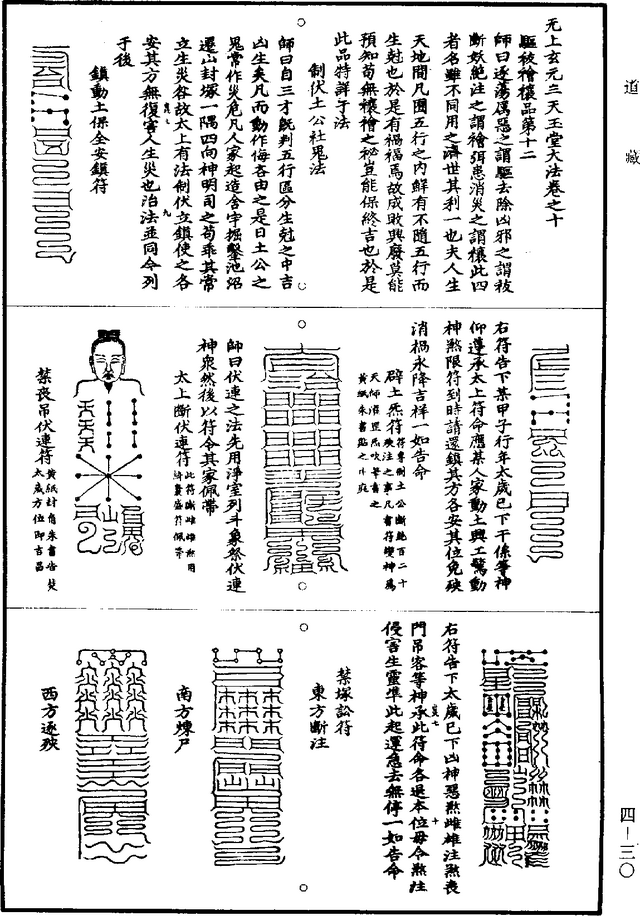 道藏
四-三〇
无上玄元三天玉堂大法卷之十
驅祓禬禳品第十二
師曰逐蕩厲惡之謂驅去除凶邪之謂祓
斷妖絕注之謂禬弭患消災之謂禳此四
者名雖不同用之濟世其利一也夫人生
天地間凡囿五行之內鮮有不隨五行而
生尅也於是有禍福焉故成敗興廢莫能
預知苟無禳禬之秘豈能保終吉也於是
此品特詳于法
制伏土公社鬼法
師曰自三才既判五行區分生尅之中吉
凶生矣凡而動作悔吝由之是日土公之
鬼常作災危凡人家起造舍宇掘鑿池沼
遷山封塚一隅四向神明司之苟乖其常
立生災咎故太上有法制伏立鎮使之各
安其方無復害人生災也治法並同今列
于後
鎮動土保全安鎮符
右符告下某甲子行年太歲已下干係等神
仰遵承太上符命應某人家動土興工驚動
神煞限符到時請還鎮其方各安其位免殃
消禍永降吉祥一如告命
辟土炁符
符專制土公斷絕百二十
殃注之事凡書符變神為
天師滔罡炁吹筆書之
黃紙朱書貼之斗庭
師曰伏連之法先用淨室列斗象祭伏連
神衆然後以符令其家佩帶
太上斷伏連符
此符斷雌雄煞用
絳囊盛符佩帶
禁喪吊伏連符
黃紙封角朱書告焚
太歲方位即吉昌
右符告下太歲已下凶神惡煞雌雄注煞喪
門吊客等神承此符命各退本位毋令煞注
侵害生靈準此起運急去無停一如告命
禁塚訟符
東方斷注
南方煉尸
西方逐殃